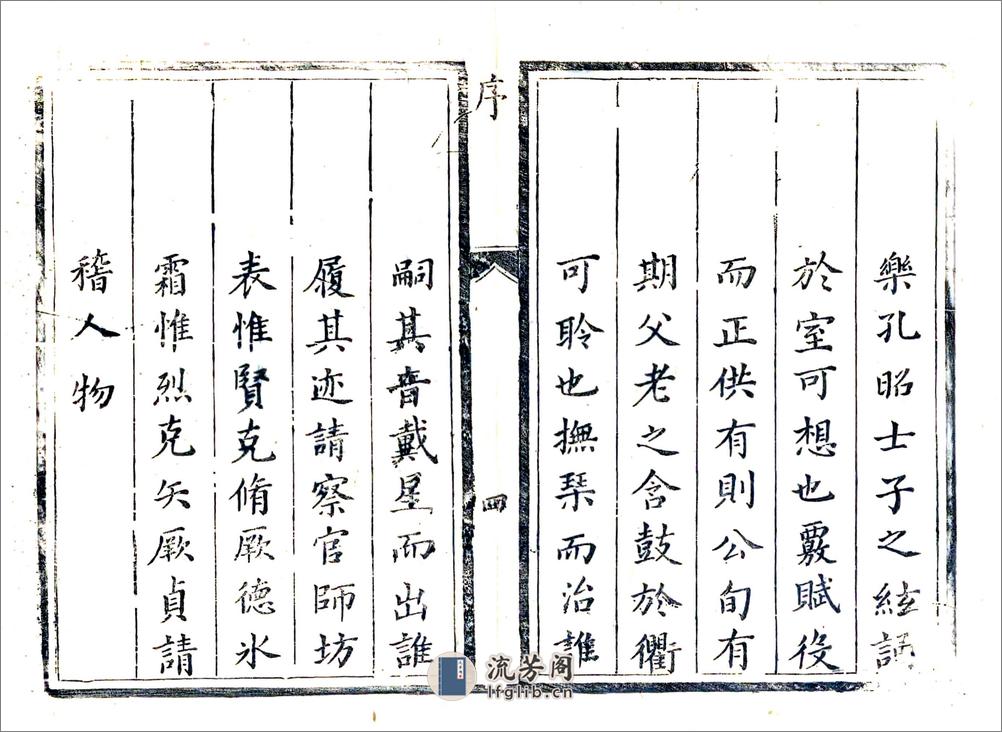 樂孔昭士子之絃誦
於室可想也覈賦役
而正供有則公旬有
期父老之含鼓於衢
可聆也撫琴而治誰
序
四
嗣其音戴星而出誰
履其迹請察官師坊
表惟賢克脩厥德氷
霜惟烈克矢厥貞請
稽人物
流芳阁
lfglib.cn